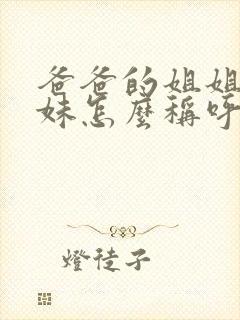 爸爸的姐姐
妹怎麼稱呼
燈徒子